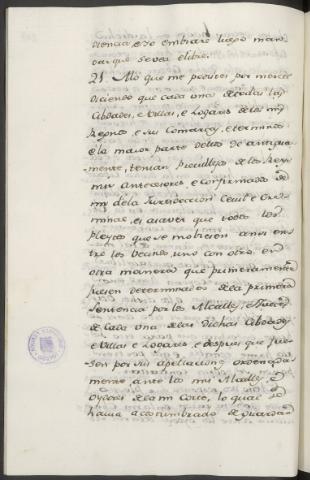 diencia, e se embiare luego man
dar que se vea e libre.
21. A lo que me pedides por merced
diciendo que cada una de todas las
Cibdades, e Villas, e Logares de los mis
Regnos, e sus Comarcas, e terminos
e la maior parte dellos de antigua-
mente, tenian previllejos de los Reyes
mis antecesores e confirmados de
mi, de la Jurisdiccion Cevil e Cri-
minal, es a saver que todos los
pleytos que se moviesen anos en-
tre los vecinos uno con otro, en
otra manera que primeramente
fuesen determinados de la primera
sentencia por los Alcalles, e Jueces
de Cada una de las dichas Cibdades
e Villas e Logares, e despues que fue-
sen por sus apellaciones ordenada-
mente, ante los mis Alcalles, e
Oydores de la mi Corte, lo qual se
havia acostumbrado de guardar